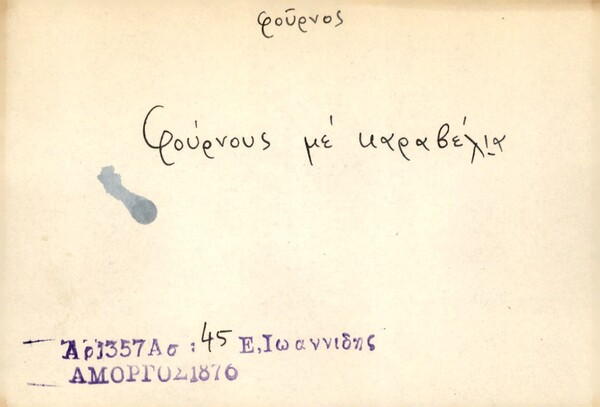 φοῦρνος
Φούρνους μέ καραβέλια
Ἀρ1357Ασ : 45 Ε, Ιωαννιδης
ΑΜΟΡΓΟΣ1876